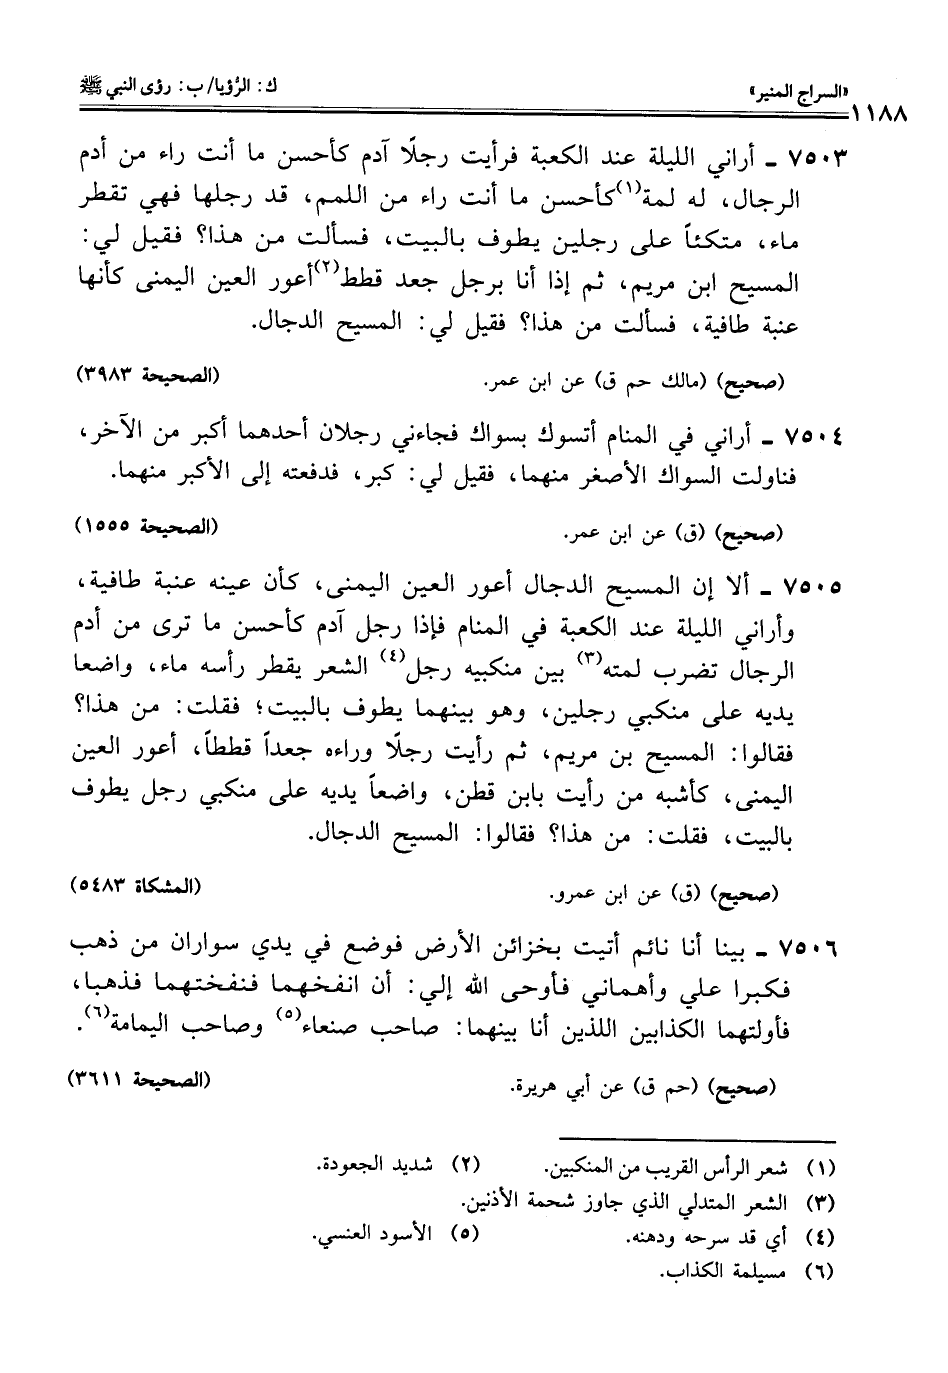 «السراج المنير» ك: الرُّؤيا/ ب: رؤى النبي ﷺ
١١٨٨
٧٥٠٣ ـ أراني الليلة عند الكعبة فرأيت رجلًا آدم كأحسن ما أنت راء من أدم
الرجال، له لمة(١)كأحسن ما أنت راء من اللمم، قد رجلها فهي تقطر
ماء، متكئاً على رجلين يطوف بالبيت، فسألت من هذا؟ فقيل لي:
المسيح ابن مريم، ثم إذا أنا برجل جعد قطط(٢)أعور العين اليمنى كأنها
عنبة طافية، فسألت من هذا؟ فقيل لي: المسيح الدجال.
(صحيح) (مالك حم ق) عن ابن عمر. (الصحيحة ٣٩٨٣)
٧٥٠٤ ـ أراني في المنام أتسوك بسواك فجاءني رجلان أحدهما أكبر من الآخر،
فناولت السواك الأصغر منهما، فقيل لي: كبر، فدفعته إلى الأكبر منهما.
(صحيح) (ق) عن ابن عمر. (الصحيحة ١٥٥٥)
٧٥٠٥ ـ ألا إن المسيح الدجال أعور العين اليمنى، كأن عينه عنبة طافية،
وأراني الليلة عند الكعبة في المنام فإذا رجل آدم كأحسن ما ترى من أدم
الرجال تضرب لمته(٣) بين منكبيه رجل(٤) الشعر يقطر رأسه ماء، واضعا
يديه على منكبي رجلين، وهو بينهما يطوف بالبيت؛ فقلت: من هذا؟
فقالوا: المسيح بن مريم، ثم رأيت رجلًا وراءه جعداً قططاً، أعور العين
اليمنى، كأشبه من رأيت بابن قطن، واضعاً يديه على منكبي رجل يطوف
بالبيت، فقلت: من هذا؟ فقالوا: المسيح الدجال.
(صحيح) (ق) عن ابن عمرو. (المشكاة ٥٤٨٣)
٧٥٠٦ ـ بينا أنا نائم أتيت بخزائن الأرض فوضع في يدي سواران من ذهب
فكبرا علي وأهماني فأوحى الله إلي: أن انفخهما فنفختهما فذهبا،
فأولتهما الكذابين اللذين أنا بينهما: صاحب صنعاء(٥) وصاحب اليمامة(٦).
(صحيح) (حم ق) عن أبي هريرة. (الصحيحة ٣٦١١)
(١) شعر الرأس القريب من المنكبين. (٢) شديد الجعودة.
(٣) الشعر المتدلي الذي جاوز شحمة الأذنين.
(٤) أي قد سرحه ودهنه. (٥) الأسود العنسي.
(٦) مسيلمة الكذاب.